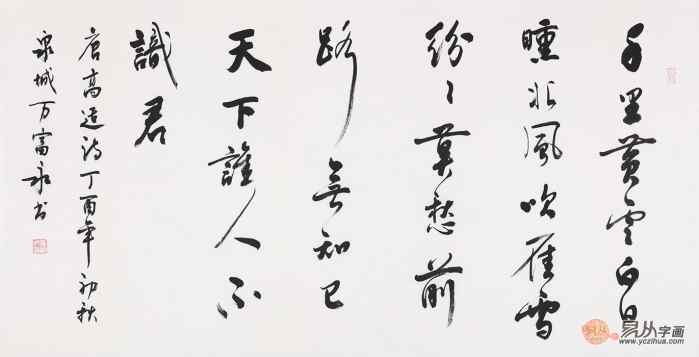 千里黄雲白日
曛北風吹雁雪
紛々莫愁前
路無知己
天下誰人不
識君
唐高適詩丁酉年初秋
泉城万富永书
易从字画
www.yczihua.com